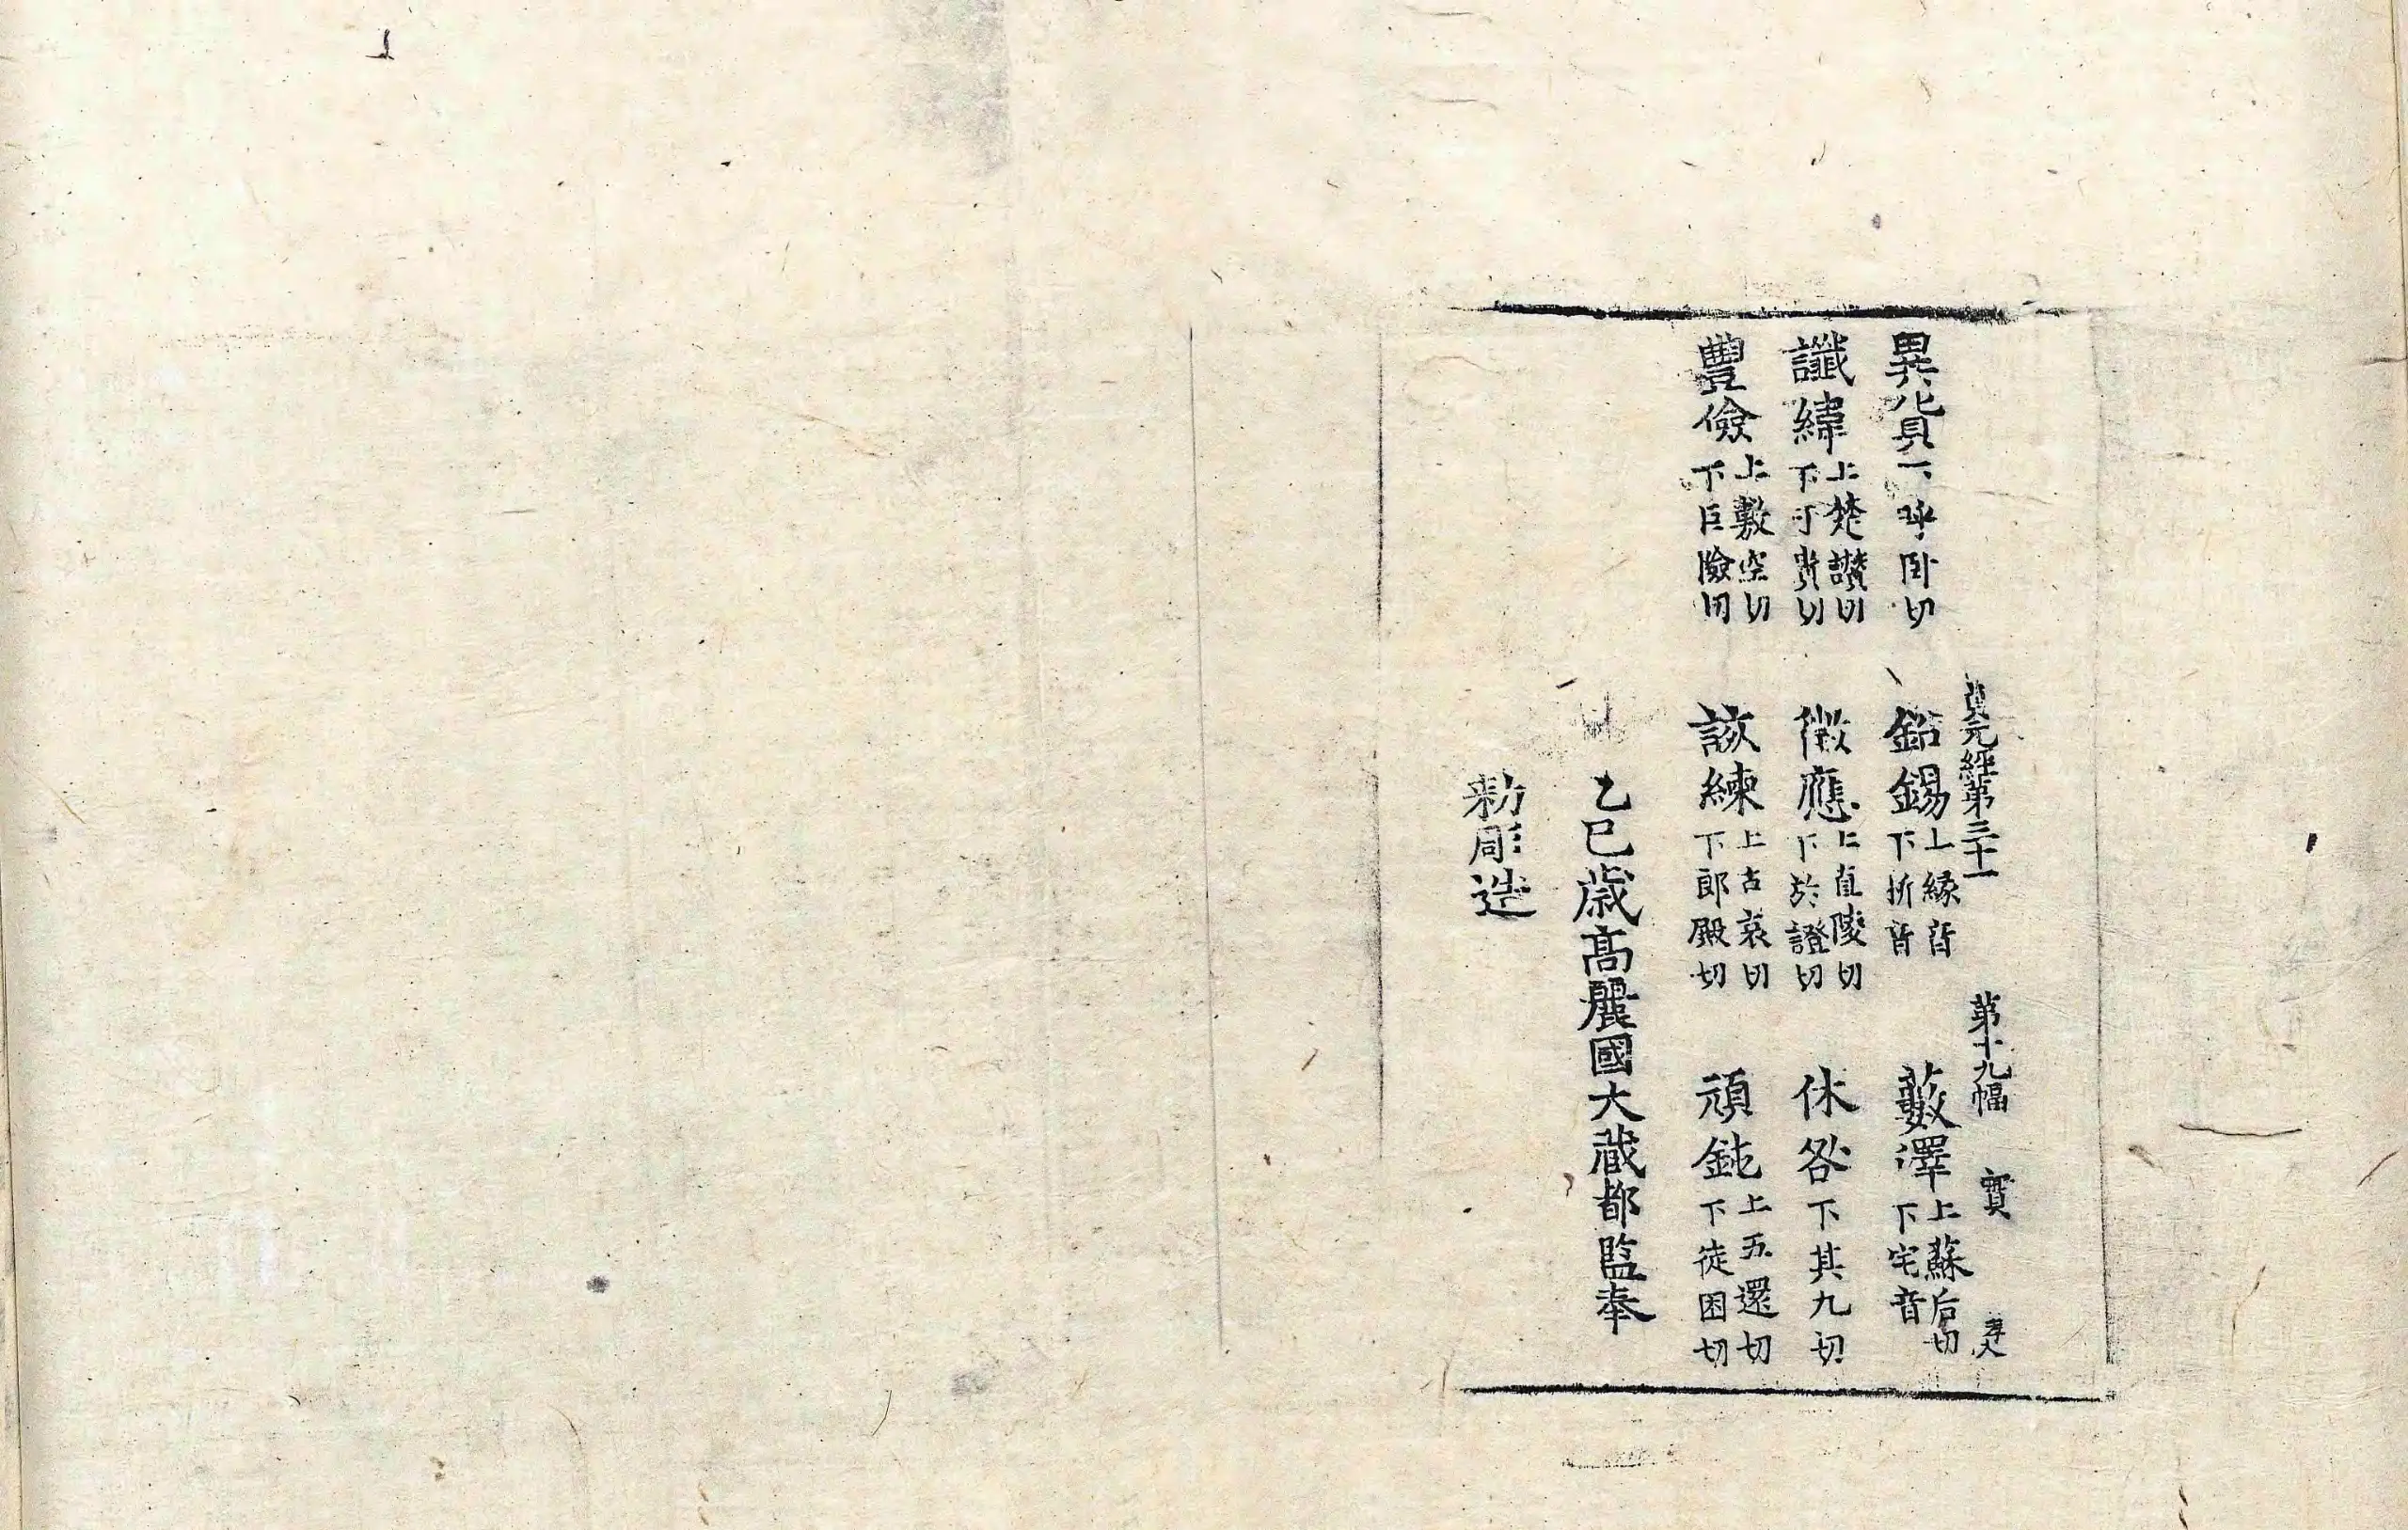 貞元經第三十一 第十九幅 寳
異貨下呼卧切 鈆錫上縁音下㭊音 藪澤上蘇后切下宅音
讖緯上楚譛切下于貴切 徴應上直陵切下於證切 休咎下其九切
豐儉上敷空切下巨險切 該練上古哀切下郎殿切 頑鈍上五還切下徒困切
乙巳歲高麗國大藏都監奉
勑彫造